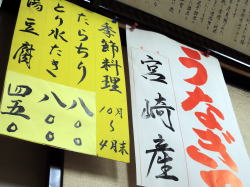 うなぎ
宮崎産
季節料理
10月〜4月末
たらちり 八〇〇
とり水たき 八〇〇
湯豆腐 四五〇